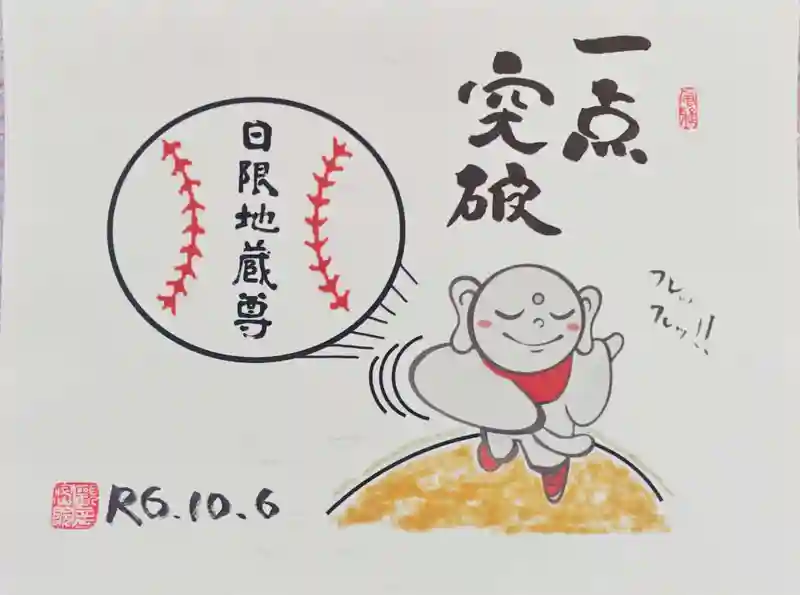 一点
突破
日限地蔵尊
フレッ
フレッ!!
R6.10.6